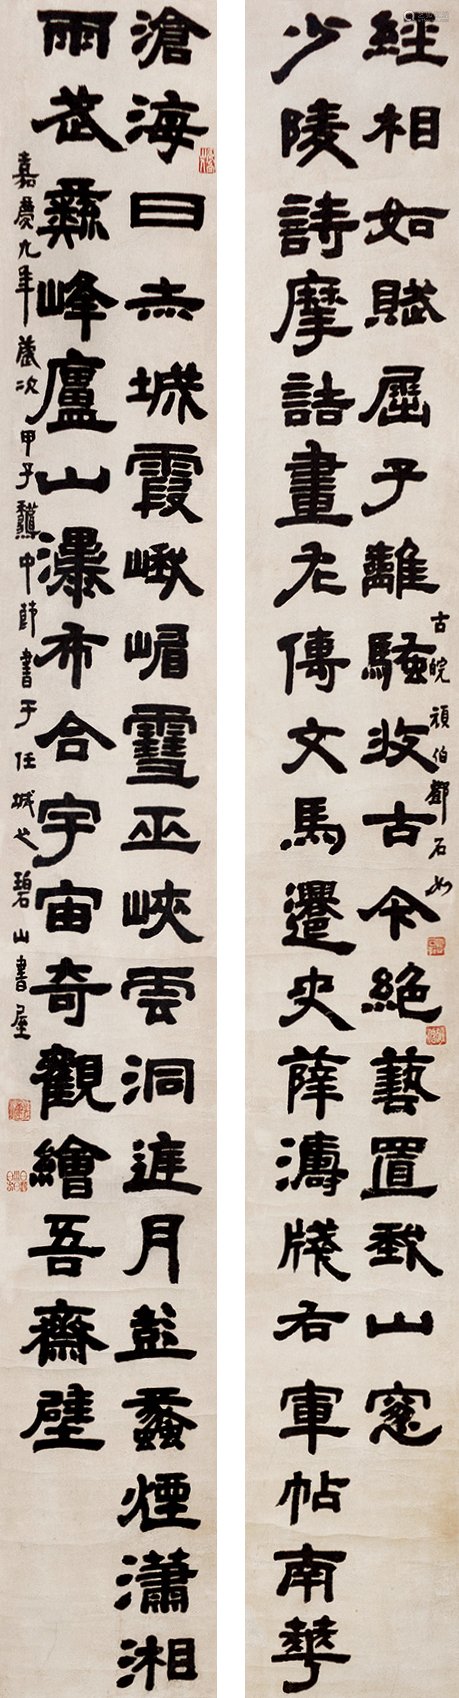 滄海日赤城霞峨嵋雪巫峽雲洞庭月彭蠡煙瀟湘
雨武彝峰廬山瀑布合宇宙奇觀繪吾齋壁
嘉慶九年歲次甲子中節書于任城之碧山書屋
少陵詩摩詰畫左傳文馬遷史薛濤牋右軍帖南華
經相如賦屈子離騷收古今絕藝置我山窓
古皖頑伯鄧石如